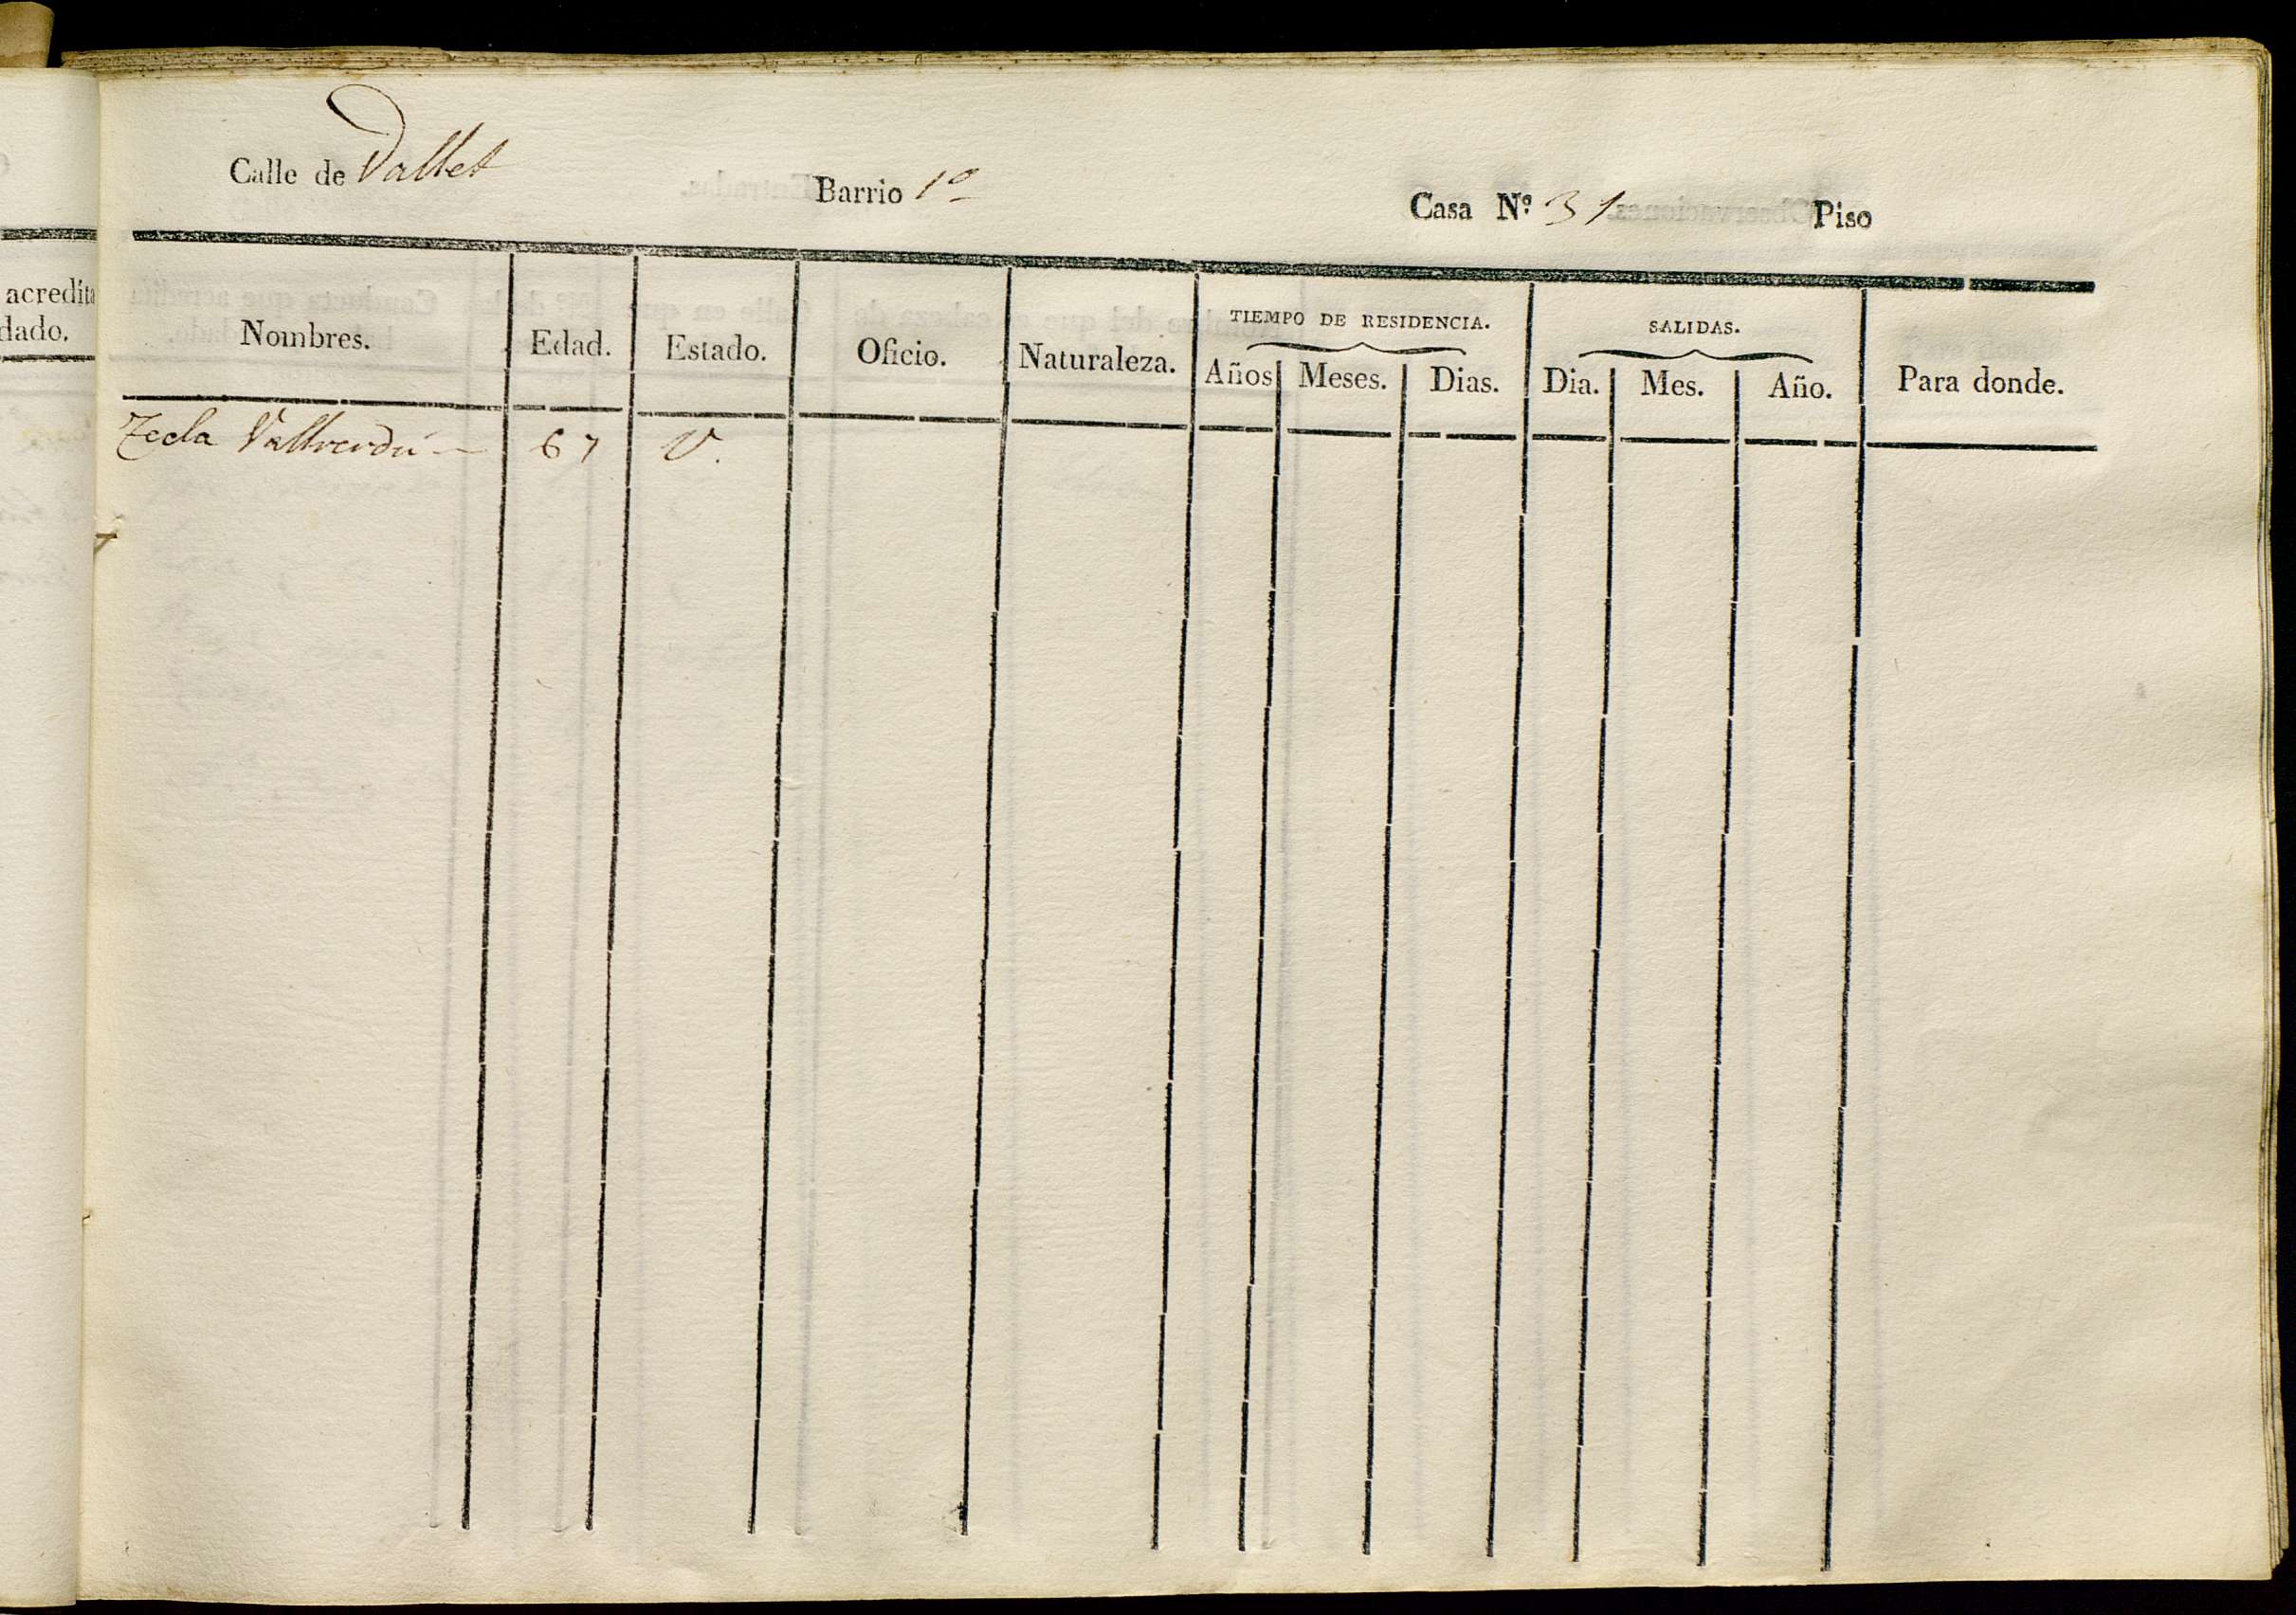 acredita
dado.
Calle de Vallet Barrio 1º Casa Nº 31 Piso
Nombres. Edad. Estado. Oficio. Naturaleza. TIEMPO DE RESIDENCIA. SALIDAS. Para donde.
Años Meses. Dias. Dia. Mes. Año.
Tecla Vallverdú 67 V.